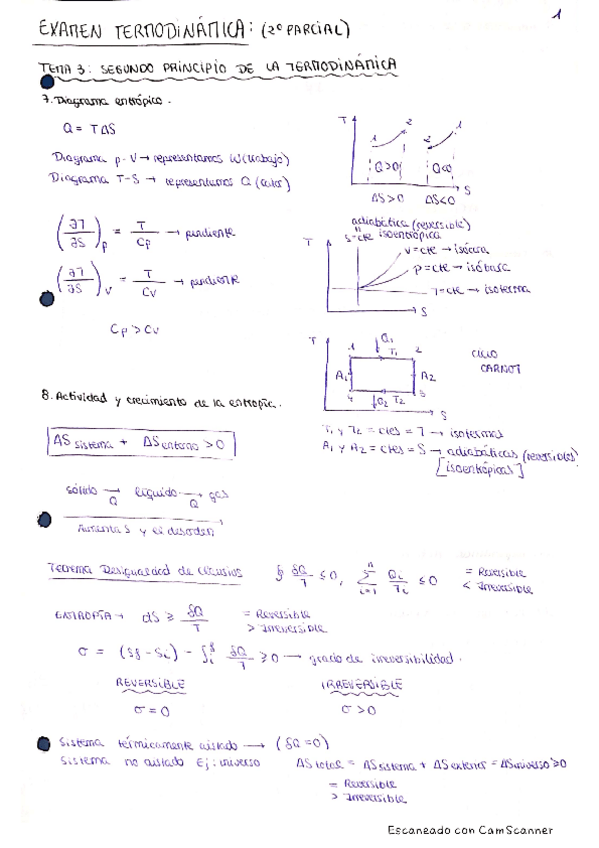 1
EXAMEN TERMODINÁMICA: (2º PARCIAL)
TEMA 3: SEGUNDO PRINCIPIO DE LA TERMODINÁMICA
7. Diagrama entrópico.
Q = TΔS
Diagrama p-V → representamos W (trabajo)
Diagrama T-S → representamos Q (calor)
T 1 2 2 1
Q>0 Q<0
S
ΔS>0 ΔS<0
(∂T/∂S)p = T/Cp → pendiente
(∂T/∂S)V = T/CV → pendiente
Cp > CV
adiabática (reversible)
S=cte isoentrópica
T V=cte → isócora
p=cte → isóbara
T=cte → isoterma
S
T 1 Q1 T1 2
A1 A2
4 Q2 T2 3
S
CICLO
CARNOT
8. Actividad y crecimiento de la entropía.
T1 y T2 = ctes = T → isotermas
A1 y A2 = ctes = S → adiabáticas (reversibles)
[isoentrópicas]
ΔS sistema + ΔS entorno > 0
sólido →Q líquido →Q gas
Aumenta S y el desorden
Teorema Desigualdad de Clausius ∮ δQ/T ≤ 0, Σ(i=1, n) Qi/Ti ≤ 0 = Reversible
< Irreversible
ENTROPÍA → dS ≥ δQ/T = Reversible
> Irreversible
σ = (Sf - Si) - ∫if δQ/T ≥ 0 → grado de irreversibilidad.
REVERSIBLE IRREVERSIBLE
σ = 0 σ > 0
Sistema térmicamente aislado → (δQ = 0)
Sistema no aislado Ej: universo ΔS total = ΔS sistema + ΔS exterior = ΔS universo ≥ 0
= Reversible
> Irreversible
Escaneado con CamScanner